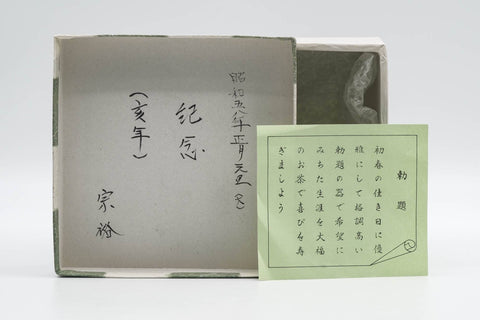 昭和五八年正月元旦
紀念
(亥年)
宗裕
勅題
初春の佳き日に優
雅にして格調高い
勅題の器で希望に
みちた生涯を大福
のお茶で喜びを寿
ぎましょう